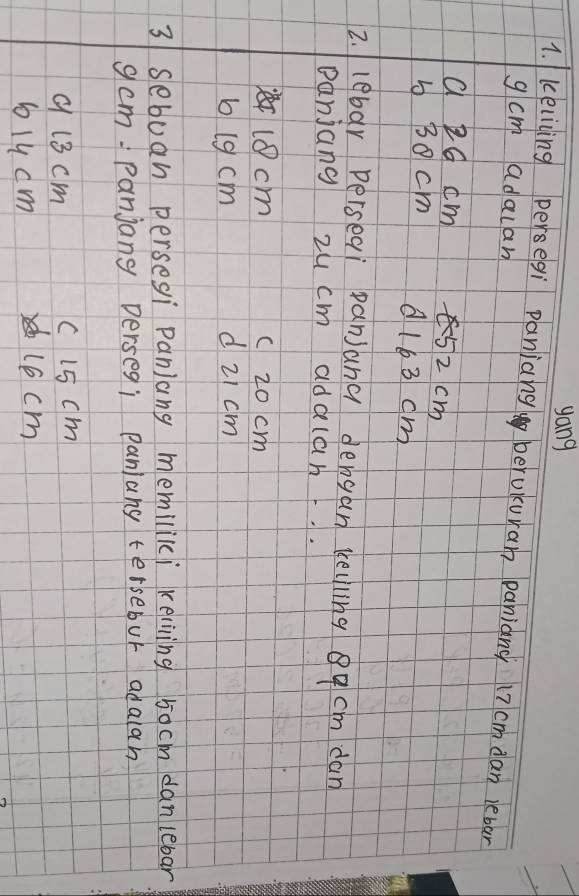 yang
1. Keliling persegi panjang berukuran panjang 17 cm dan lebar
9 cm adalah
a 26 cm c 52 cm
b 38 cm d 163 cm
2. lebar persegi panjang dengan keliling 84 cm dan
Panjang 24 cm adalah ...
a 18 cm c 20 cm
b 19 cm d 21 cm
3 sebuah persegi panjang memiliki keliling 50 cm dan lebar
9 cm. Panjang persegi panjang tersebut adalah
a 13 cm c 15 cm
b 14 cm d 16 cm